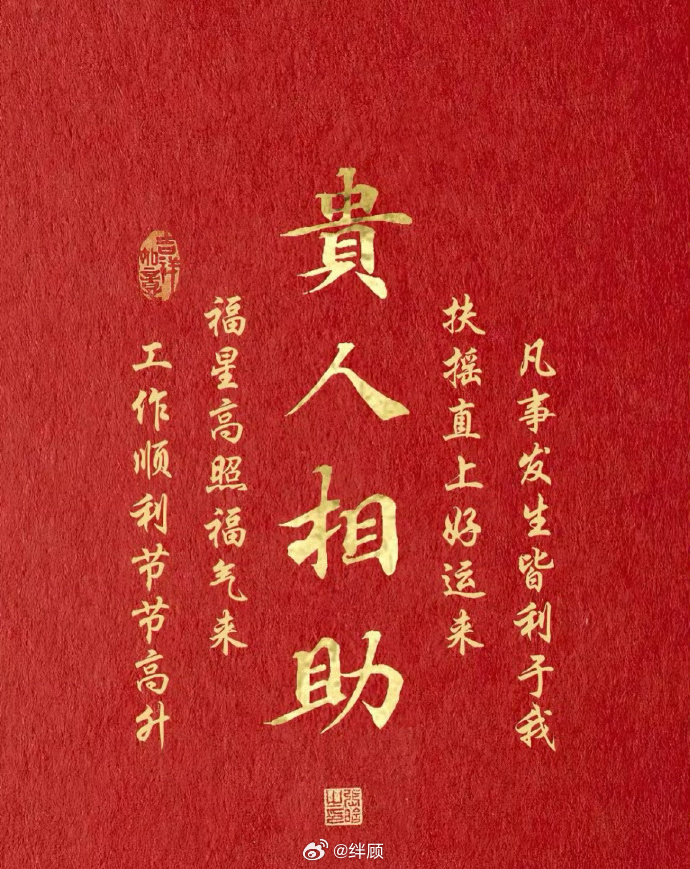 凡事发生皆利于我
扶摇直上好运来
貴人相助
福星高照福气来
工作顺利节节高升
吉祥如意
@绊顾